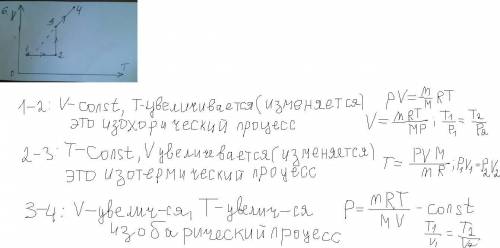 6. V
3 4
1 2
0 T
1-2: V-const, T-увеличивается (изменяется) PV = m/M RT
это изохорический процесс V = mRT/MP ; T1/P1 = T2/P2
2-3: T-Const, V увеличивается (изменяется)
это изотермический процесс T = PVM/mR ; P1V1 = P2V2
3-4: V-увелич-ся, T-увелич-ся P = mRT/MV - const
изобарический процесс T1/V1 = T2/V2